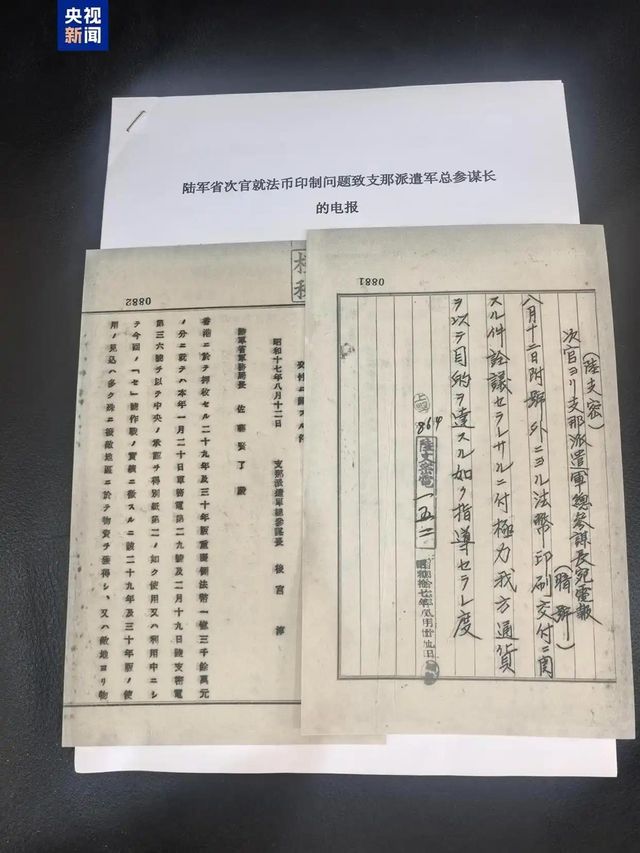 央视
新闻
陆军省次官就法币印制问题致支那派遣军总参谋长
的电报
0881
(陸支密)
次官ヨリ支那派遣軍總参謀長宛電報
(暗號)
八月十二日附號外ニヨル法幣印刷交付ニ関
スル件詮議セラレサルニ付極力我方通貨
ヲ以テ目的ヲ達スル如ク指導セラレ度
864
陸支密電一五二
昭和拾七年八月廿九日
0882
交付ニ關スル件
昭和十七年八月十二日 支那派遣軍總參謀長 後宮 淳
陸軍省軍務局長 佐藤賢了殿
香港ニ於テ押收セル二十九年及三十年版重慶側法幣一億三千餘萬元
ノ分ニ就テハ本年一月二十日軍務電第二九號及二月十九日陸支密電
第三六號ヲ以テ中央ノ承認ヲ得別紙第二ノ如ク使用又ハ利用中ニシ
テ今回ノ「セ」號作戰ノ實績ニ徴スルニ該二十九年及三十年版ノ使
用ノ見込ハ多ク殊ニ接敵地區ニ於テ物資ヲ獲得シ、又ハ敵地ヨリ物